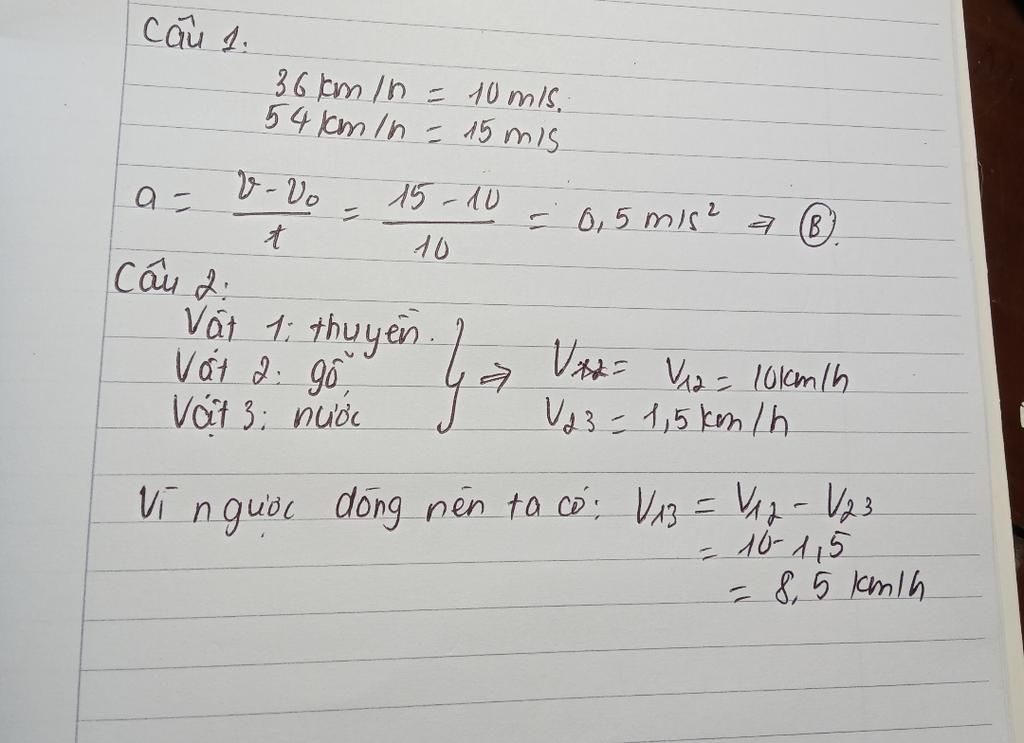 Câu 1.
36 km/h = 10 m/s.
54 km/h = 15 m/s
a = (v - v₀)/t = (15 - 10)/10 = 0,5 m/s² ⇒ Ⓑ.
Câu 2:
Vật 1: thuyền.
Vật 2: gỗ } ⇒ V₁₂ = 10 km/h
Vật 3: nước V₂₃ = 1,5 km/h
Vì ngược dòng nên ta có: V₁₃ = V₁₂ - V₂₃
= 10 - 1,5
= 8,5 km/h